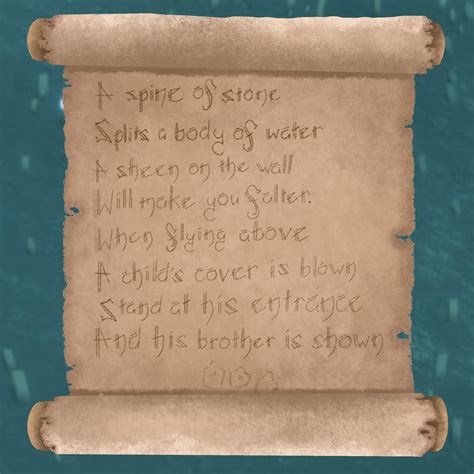 A spine of stone
Splits a body of water
A sheen on the wall
Will make you falter.
When flying above
A child's cover is blown
Stand at his entrance
And his brother is shown